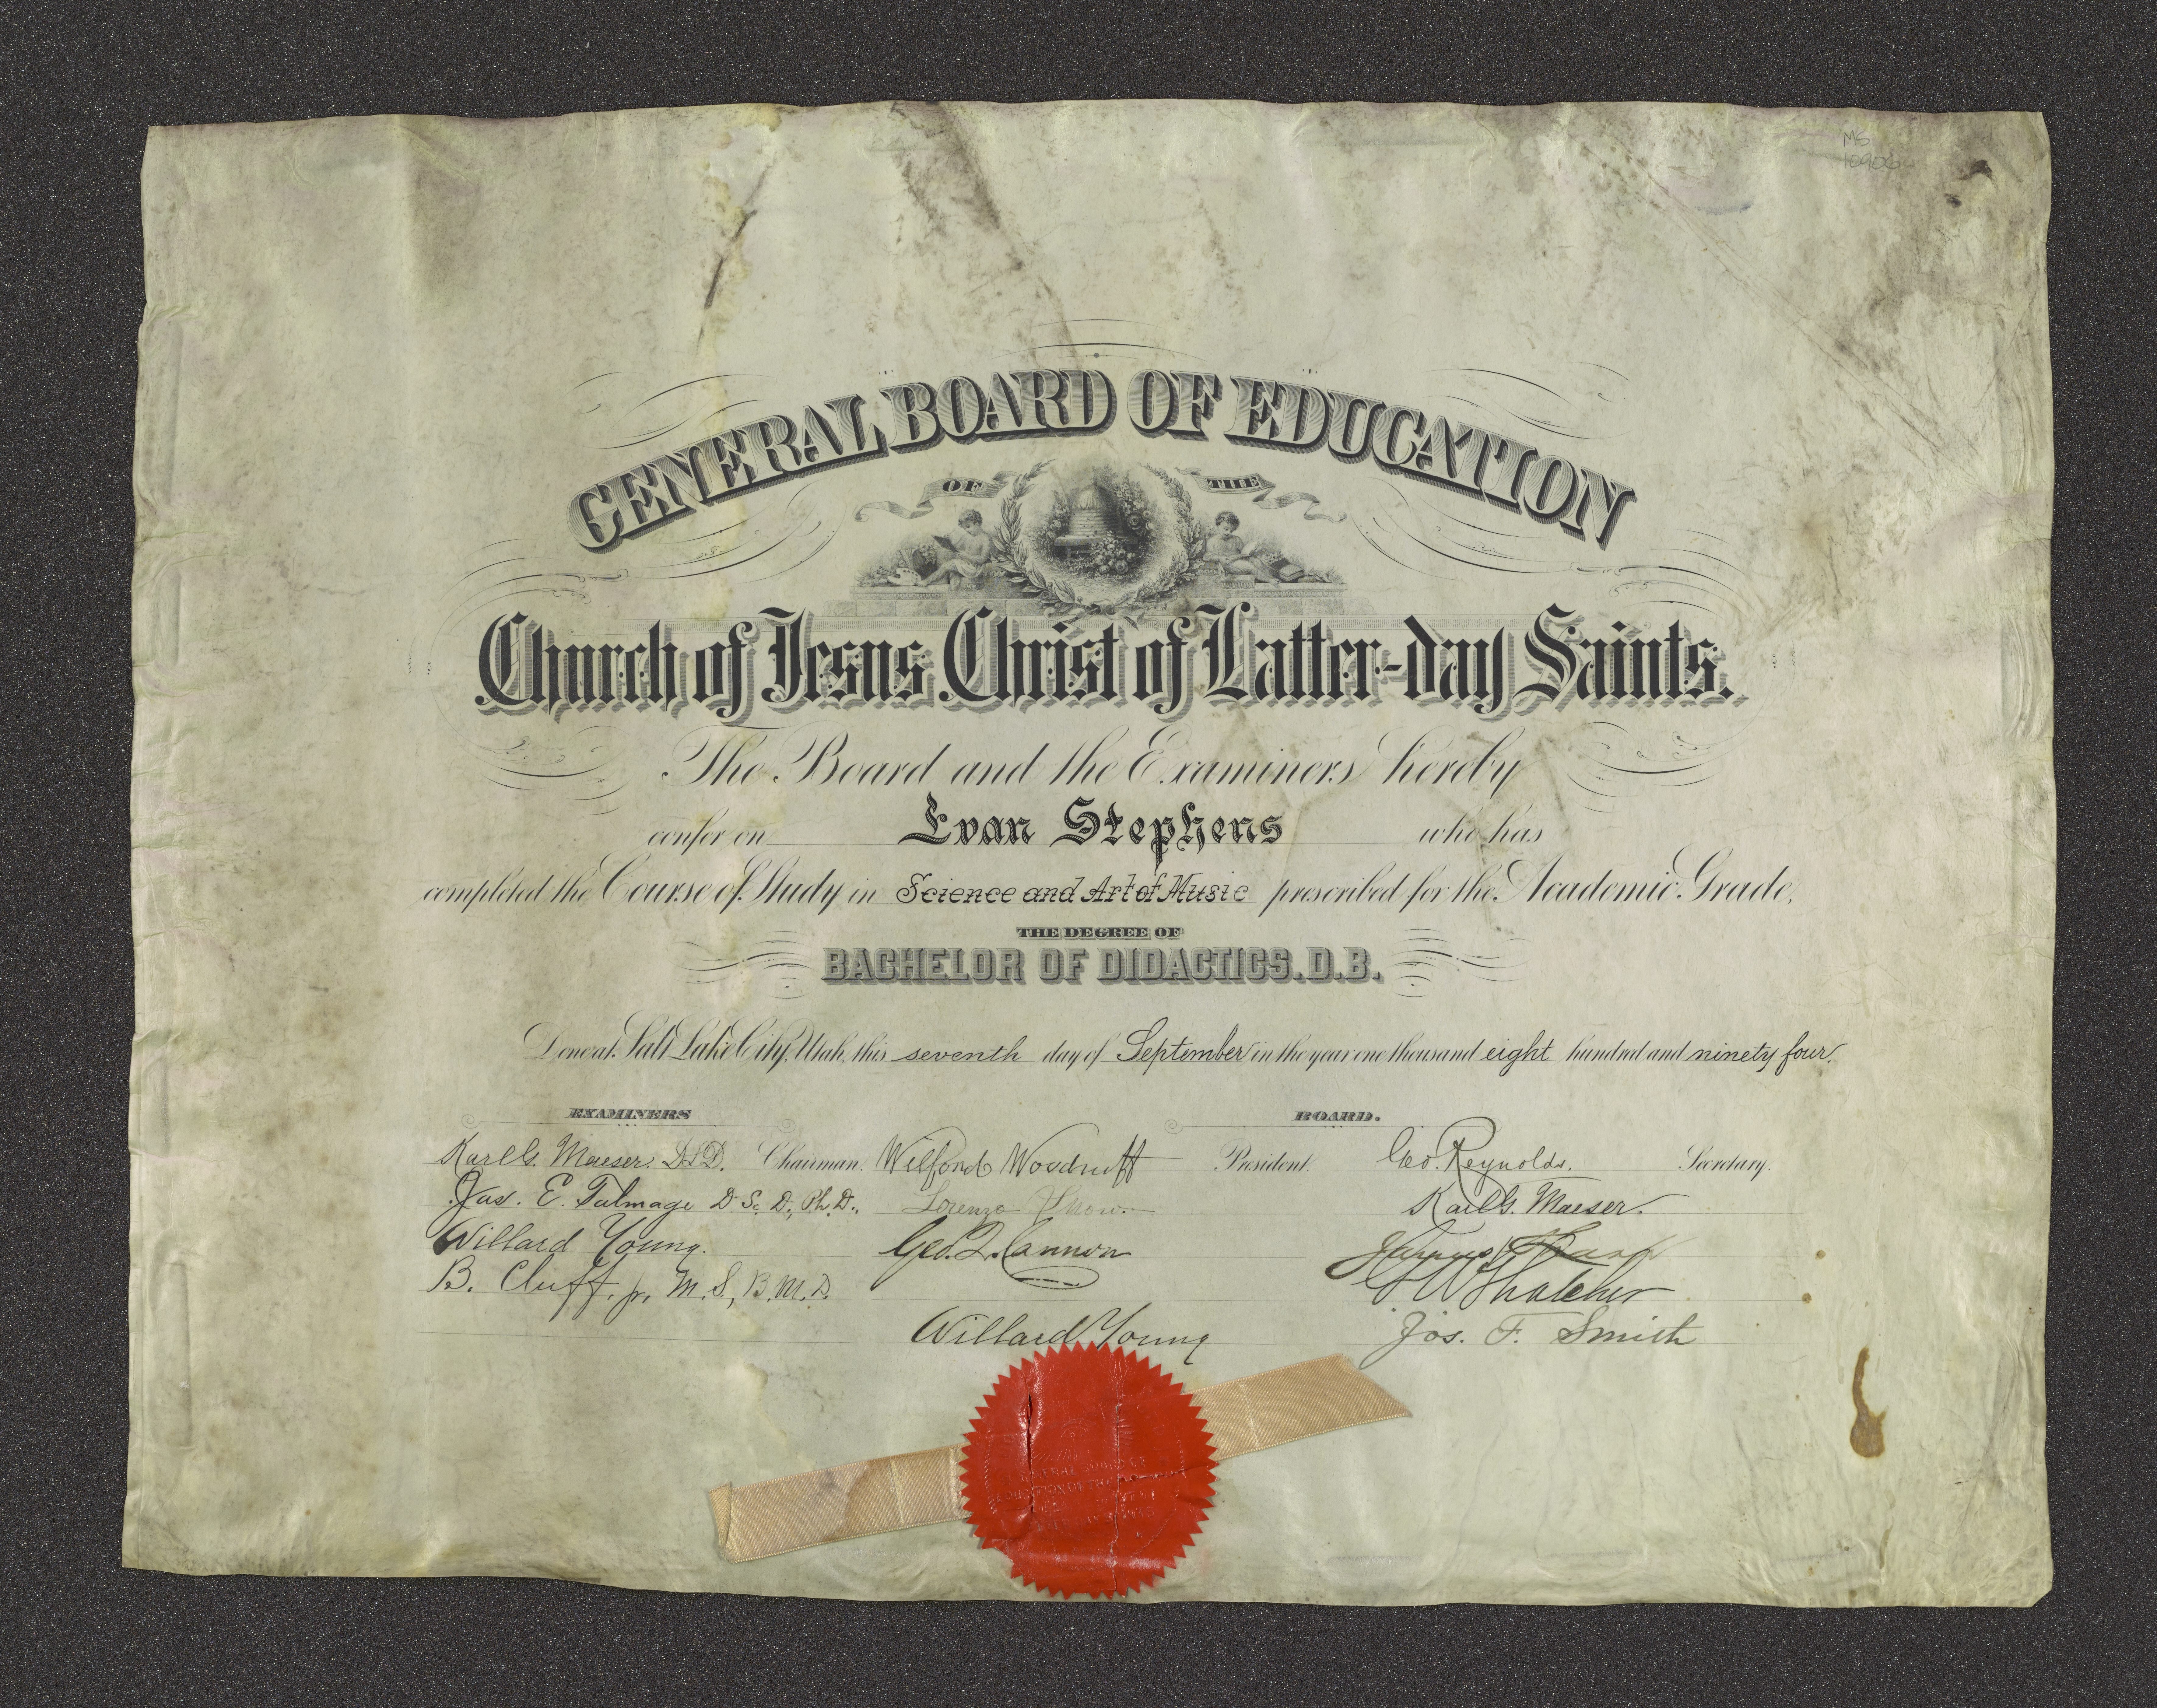 MS
GENERAL BOARD OF EDUCATION
OF THE
Church of Jesus Christ of Latter-day Saints.
The Board and the Examiners hereby
confer on Evan Stephens who has
completed the Course of Study in Science and Art of Music prescribed for the Academic Grade,
THE DEGREE OF
BACHELOR OF DIDACTICS. D.B.
Done at Salt Lake City, Utah, this seventh day of September in the year one thousand eight hundred and ninety four.
EXAMINERS
BOARD.
Karl G. Maeser. D.L.D. Chairman. Wilford Woodruff President. Geo. Reynolds. Secretary.
Jas. E. Talmage D. Sc. D., Ph. D., Lorenzo Snow. Karl G. Maeser.
Willard Young. Geo. Q. Cannon James Sharp
B. Cluff, jr, M. S., B. M. D. Thatcher
Willard Young Jos. F. Smith
GENERAL BOARD OF
EDUCATION OF THE